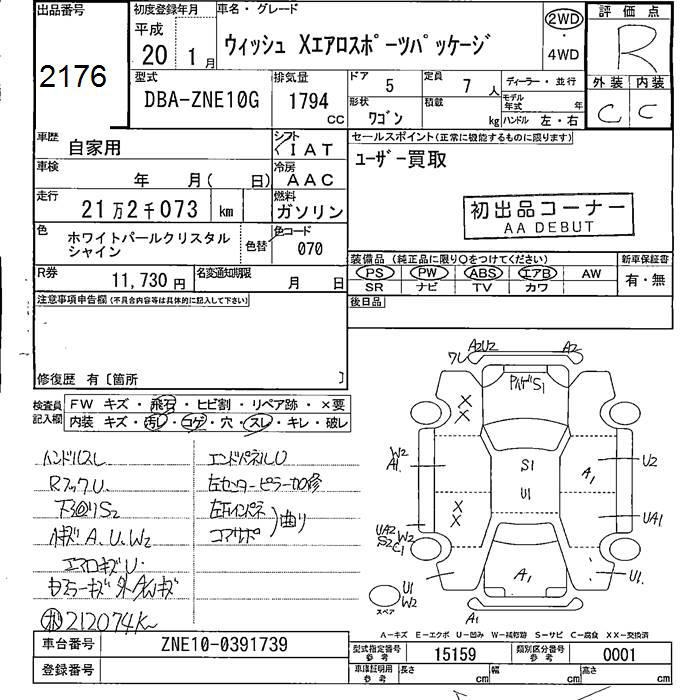 出品番号
2176
初度登録年月
平成
20 1月
車名・グレード
ウィッシュ Xエアロスポーツパッケージ
2WD
・
4WD
評価点
R
外装 内装
C C
型式
DBA-ZNE10G
排気量
1794
CC
ドア 5
定員 7 人
ディーラー・並行
形状 ワゴン
積載 kg
モデル年式 年
ハンドル 左・右
車歴 自家用
シフト
IAT
セールスポイント(正常に機能するものに限ります)
ユーザー買取
車検 年 月( 日)
冷房
AAC
走行
21万2千073 km
燃料
ガソリン
初出品コーナー
AA DEBUT
色
ホワイトパールクリスタル
シャイン
色替
色コード
070
装備品(純正品に限り○をつけてください)
新車保証書
PS PW ABS エアB AW
有・無
SR ナビ TV カワ
R券
11,730 円
名変通知期限
月 日
後日品
注意事項申告欄(不具合内容等は具体的に記入して下さい)
修復歴 有〔箇所 〕
検査員
記入欄
FW キズ・飛石・ヒビ割・リペア跡・×要
内装 キズ・汚レ・コゲ・穴・スレ・キレ・破レ
ハンドルスレ
RフックU
下回りS2
A.U.W2
エアロキズU
212074K
エンドパネルU
左センターピラー加修
左リインパネ
コアサポ
曲り
A2U2
ワレ
A2
S1
X
X
W2
A1
S1
U1
A1
U2
X
X
UA2
W2
S2
C1
UA1
U1
W2
スペア
A1
U1
A1
A-キズ E-エクボ U-凹み W-補修跡 S-サビ C-腐食 XX-交換済
車台番号
ZNE10-0391739
型式指定番号
参考
15159
類別区分番号
参考
0001
登録番号
車体証明用
参考
長さ cm
幅 cm
高さ cm